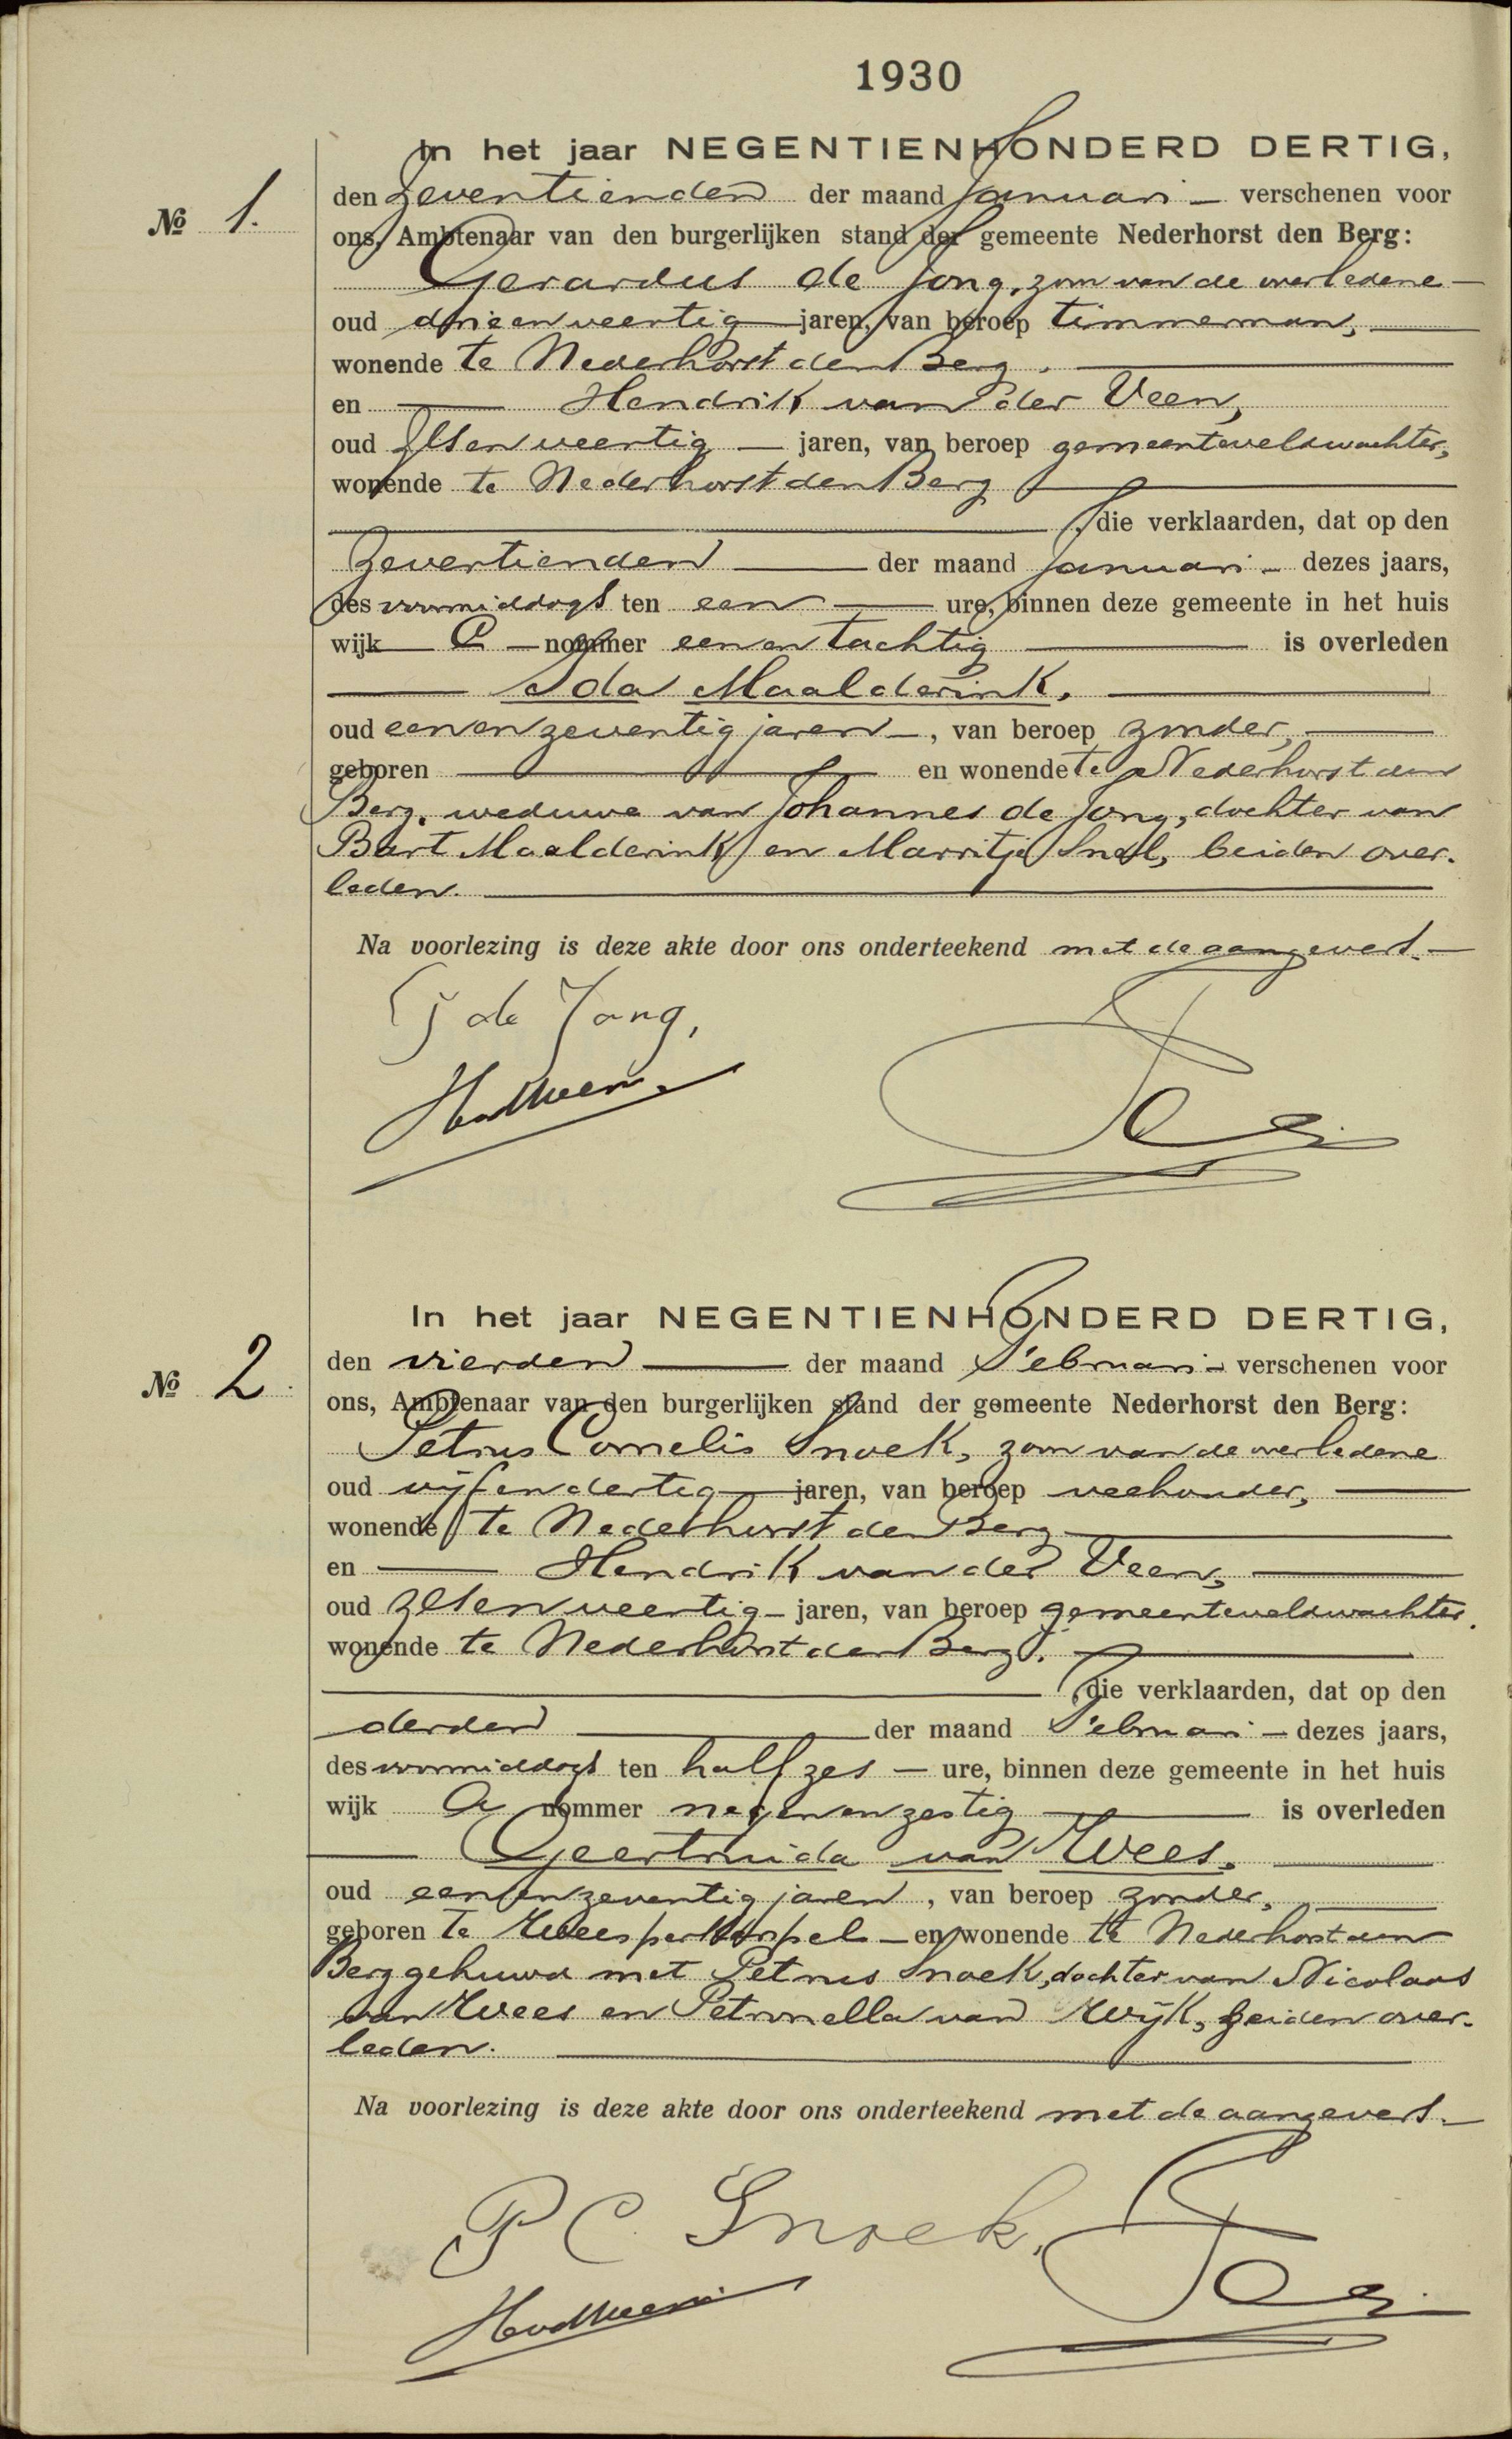 1930
In het jaar NEGENTIENHONDERD DERTIG,
den zeventienden der maand Januari verschenen voor
No 1.
ons, Ambtenaar van den burgerlijken stand der gemeente Nederhorst den Berg:
Gerardus de Jong, zoon van de overledene
oud drieenveertig jaren, van beroep timmerman,
wonende te Nederhorst den Berg,
en Hendrik van der Veen,
oud zesenveertig jaren, van beroep gemeenteveldwachter,
wonende te Nederhorst den Berg
, die verklaarden, dat op den
zeventienden der maand Januari dezes jaars,
des voormiddags ten een ure, binnen deze gemeente in het huis
wijk nommer eenentachtig is overleden
Ida Maalderink,
oud eenenzeventig jaren, van beroep zonder,
geboren en wonende te Nederhorst den
Berg, weduwe van Johannes de Jong, dochter van
Bart Maalderink en Marritje Snel, beiden over-
leden.
Na voorlezing is deze akte door ons onderteekend met de aangevers.
G de Jong,
HvdVeen.
In het jaar NEGENTIENHONDERD DERTIG,
den vierden der maand Februari verschenen voor
No 2.
ons, Ambtenaar van den burgerlijken stand der gemeente Nederhorst den Berg:
Petrus Cornelis Snoek, zoon van de overledene
oud vijfendertig jaren, van beroep veehouder,
wonende te Nederhorst den Berg
en Hendrik van der Veen,
oud zesenveertig jaren, van beroep gemeenteveldwachter,
wonende te Nederhorst den Berg.
, die verklaarden, dat op den
derden der maand Februari dezes jaars,
des voormiddags ten half zes ure, binnen deze gemeente in het huis
wijk A nommer negenenzestig is overleden
Geertruida van Wees,
oud eenenzeventig jaren, van beroep zonder,
geboren te Weesperkarspel en wonende te Nederhorst den
Berg gehuwd met Petrus Snoek, dochter van Nicolaas
van Wees en Petronella van Wijk, beiden over-
leden.
Na voorlezing is deze akte door ons onderteekend met de aangevers.
P C Snoek,
HvdVeen.